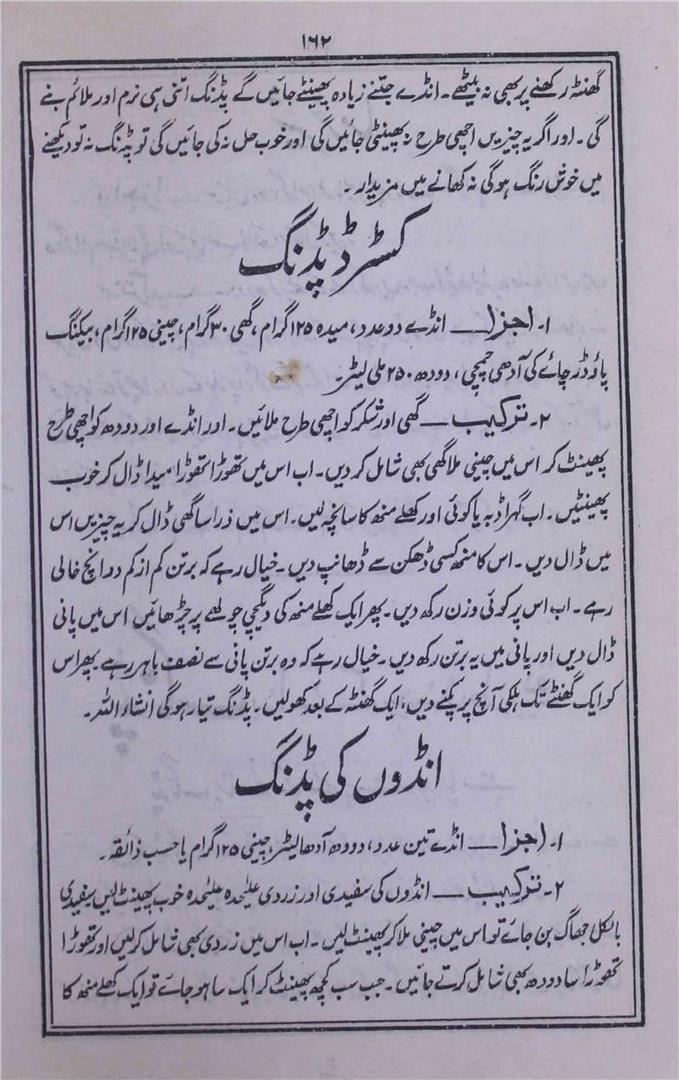 ۱۶۲
گھنٹہ رکھنے پر بھی نہ بیٹھے۔ انڈے جتنے زیادہ پھینٹے جائیں گے پڈنگ اتنی ہی نرم اور ملائم بنے
گی۔ اور اگر یہ چیزیں اچھی طرح نہ پھینٹی جائیں گی اور خوب حل نہ کی جائیں گی تو پڈنگ نہ تو دیکھنے
میں خوش رنگ ہوگی نہ کھانے میں مزیدار۔
کسٹرڈ پڈنگ
۱۔ اجزا ـــ انڈے دو عدد، میدہ ۱۲۵ گرام، گھی ۳۰ گرام، چینی ۱۲۵ گرام، بیکنگ
پاؤڈر چائے کی آدھی چمچی، دودھ ۲۵۰ ملی لیٹر
۲۔ ترکیب ـــ گھی اور شکر کو اچھی طرح ملائیں۔ اور انڈے اور دودھ کو اچھی طرح
پھینٹ کر اس میں چینی ملا گھی بھی شامل کر دیں۔ اب اس میں تھوڑا تھوڑا میدا ڈال کر خوب
پھینٹیں۔ اب گہرا ڈبہ یا کوئی اور کھلے منھ کا سانچہ لیں۔ اس میں ذرا سا گھی ڈال کر یہ چیزیں اس
میں ڈال دیں۔ اس کا منھ کسی ڈھکن سے ڈھانپ دیں۔ خیال رہے کہ برتن کم از کم دو انچ خالی
رہے۔ اب اس پر کوئی وزن رکھ دیں۔ پھر ایک کھلے منھ کی دیگچی چولھے پر چڑھائیں اس میں پانی
ڈال دیں اور پانی میں یہ برتن رکھ دیں۔ خیال رہے کہ وہ برتن پانی سے نصف باہر رہے پھر اس
کو ایک گھنٹے تک ہلکی آنچ پر پکنے دیں، ایک گھنٹہ کے بعد کھولیں۔ پڈنگ تیار ہوگی انشاء اللہ۔
انڈوں کی پڈنگ
۱۔ اجزا ـــ انڈے تین عدد، دودھ آدھا لیٹر، چینی ۱۲۵ گرام یا حسب ذائقہ۔
۲۔ ترکیب ـــ انڈوں کی سفیدی اور زردی علیٰحدہ علیٰحدہ خوب پھینٹ لیں سفیدی
بالکل جھاگ بن جائے تو اس میں چینی ملا کر پھینٹ لیں۔ اب اس میں زردی بھی شامل کر لیں اور تھوڑا
تھوڑا سا دودھ بھی شامل کرتے جائیں۔ جب سب کچھ پھینٹ کر ایک سا ہو جائے تو ایک کھلے منھ کا